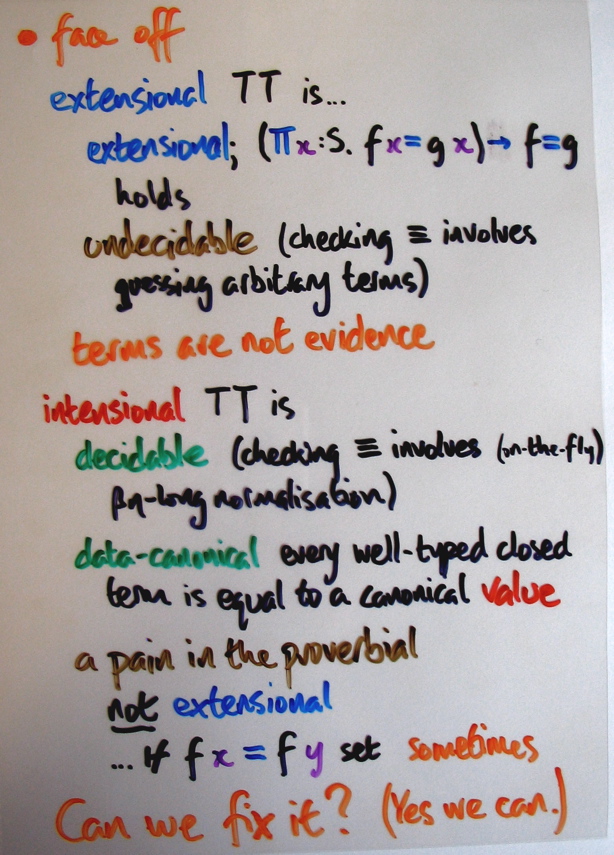 • face off
extensional TT is...
extensional; (Πx:S. fx=gx)→ f=g
holds
undecidable (checking ≡ involves
guessing arbitrary terms)
terms are not evidence
intensional TT is
decidable (checking ≡ involves (on-the-fly)
βη-long normalisation)
data-canonical every well-typed closed
term is equal to a canonical value
a pain in the proverbial
not extensional
... f x = f y set sometimes
Can we fix it? (Yes we can.)